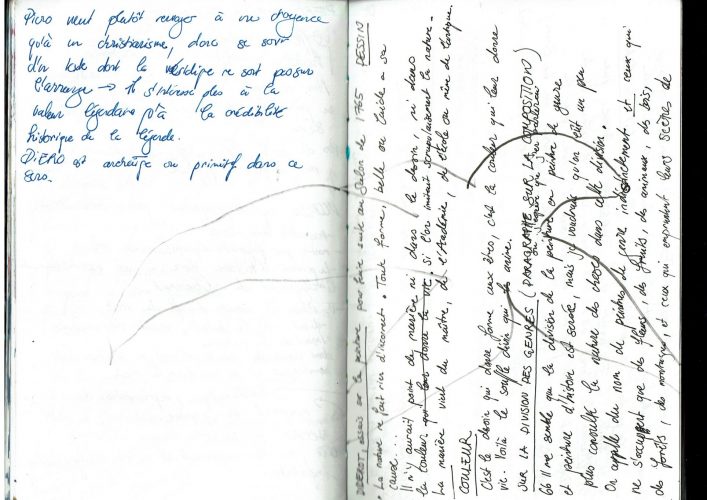 Piero veut plutôt renvoyer à une croyance
qu'à un christianisme, donc se sert
d'un texte dont la véridique ne sont pas sur
l'arrange → Il s'intéresse plus à la
valeur légendaire qu'à la crédibilité
historique de la légende.
PIERO est archaïque ou primitif dans ce
sens.
DIDEROT, essais sur la peinture pour faire suite au Salon de 1765 DESSIN
• La nature ne fait rien d'incorrect. Toute forme, belle ou laide a sa
cause...
Il n'y aurait point de manière ni dans le dessin, ni dans
la couleur si l'on imitait scrupuleusement la nature.
La manière vient du maître, de l'Académie, de l'école ou même de l'antique.
COULEUR
C'est le dessin qui donne forme aux êtres, c'est la couleur qui leur donne
vie. Voilà le souffle divin qui les anime.
SUR LA DIVISION DES GENRES (PARAGRAPHE SUR LA COMPOSITION)
66 Il me semble que la division de la peinture en peinture de genre
et peinture d'histoire est sensée, mais je voudrais qu'on eût un peu
plus consulté la nature des choses dans cette division.
On appelle du nom de peintres de genre indistinctement et ceux qui
ne s'occupent que des fleurs, des fruits, des animaux, des bois,
des forêts, des montagnes, et ceux qui empruntent leurs scènes de